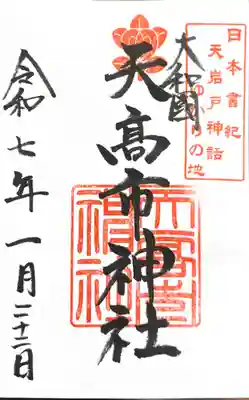 日本書紀
天岩戸神話
ゆかりの地
大和國
天高市神社
令和七年一月二十二日